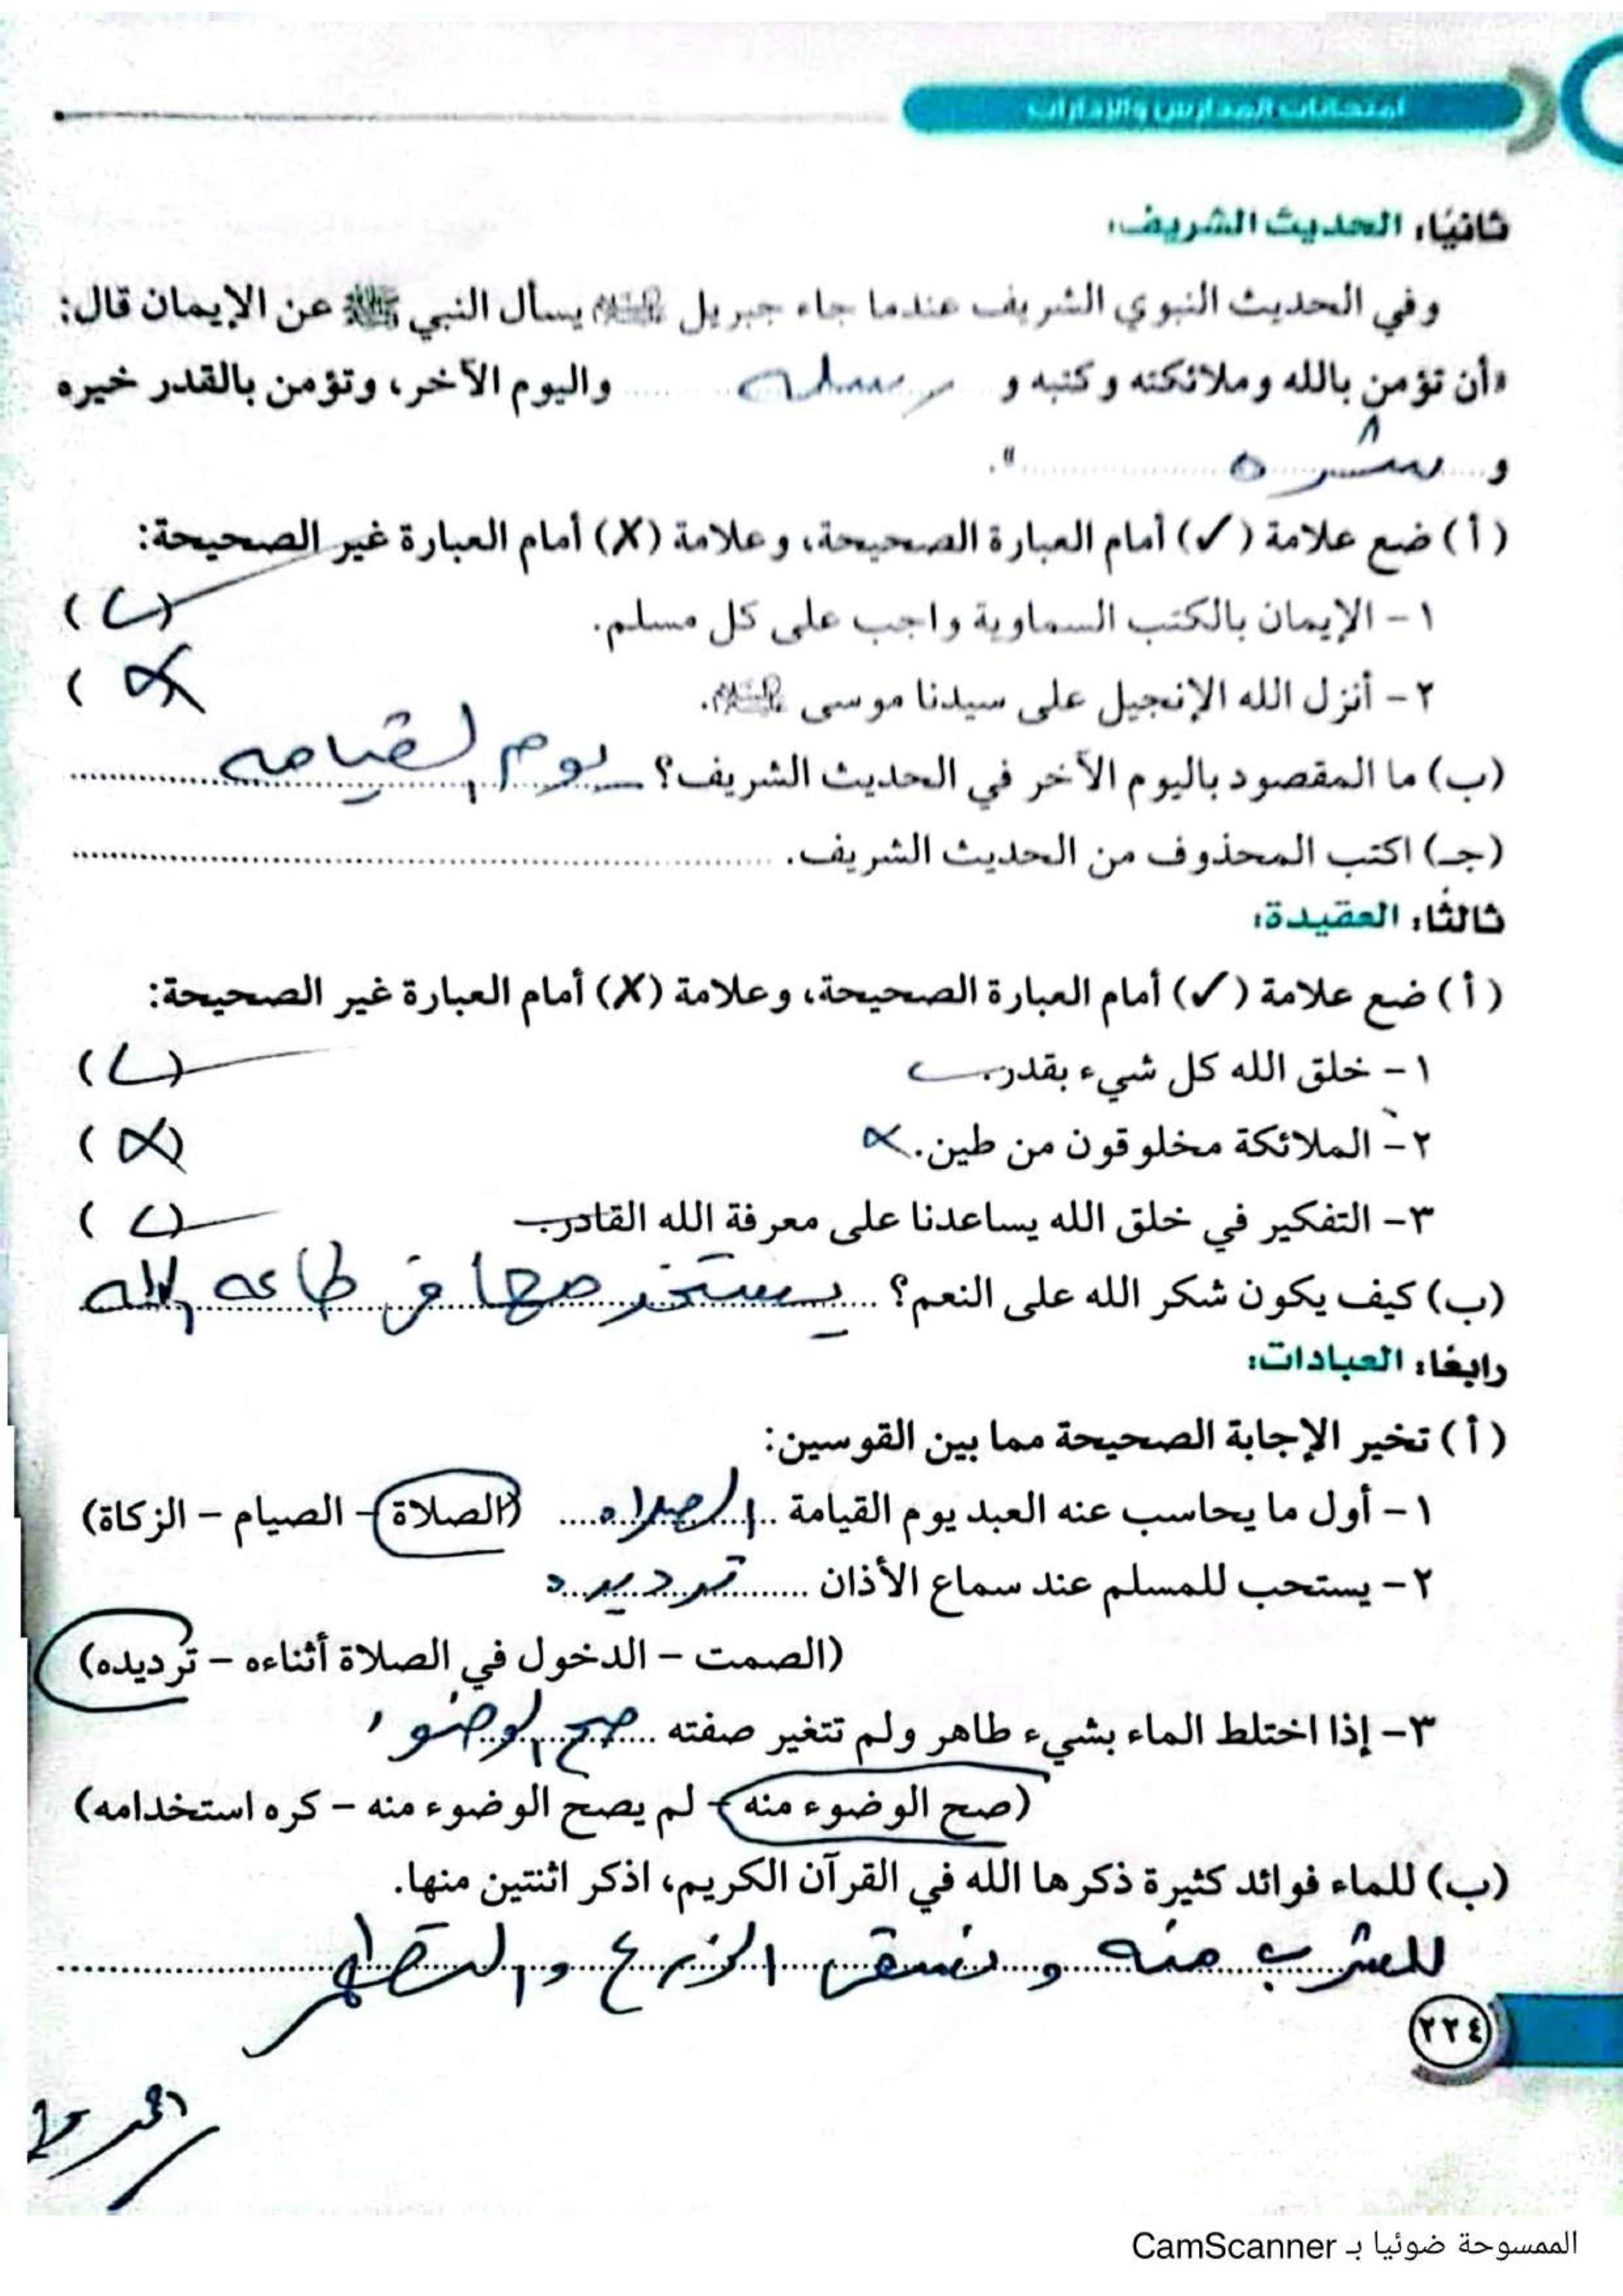 امتحانات المدارس والإدارات
ثانيًا: الحديث الشريف:
وفي الحديث النبوي الشريف عندما جاء جبريل عليه السلام يسأل النبي ﷺ عن الإيمان قال:
«أن تؤمن بالله وملائكته وكتبه و رسله واليوم الآخر، وتؤمن بالقدر خيره
و شره ».
( أ ) ضع علامة (✓) أمام العبارة الصحيحة، وعلامة (X) أمام العبارة غير الصحيحة:
١ - الإيمان بالكتب السماوية واجب على كل مسلم. (✓)
٢ - أنزل الله الإنجيل على سيدنا موسى عليه السلام. (X)
(ب) ما المقصود باليوم الآخر في الحديث الشريف؟ يوم القيامه
(جـ) اكتب المحذوف من الحديث الشريف.
ثالثًا: العقيدة:
( أ ) ضع علامة (✓) أمام العبارة الصحيحة، وعلامة (X) أمام العبارة غير الصحيحة:
١ - خلق الله كل شيء بقدر. (✓)
٢ - الملائكة مخلوقون من طين. X (X)
٣ - التفكير في خلق الله يساعدنا على معرفة الله القادر. (✓)
(ب) كيف يكون شكر الله على النعم؟ في طاعه الله
رابعًا: العبادات:
( أ ) تخير الإجابة الصحيحة مما بين القوسين:
١ - أول ما يحاسب عنه العبد يوم القيامة الصلاه (الصلاة - الصيام - الزكاة)
٢ - يستحب للمسلم عند سماع الأذان ترديد
(الصمت - الدخول في الصلاة أثناءه - ترديده)
٣ - إذا اختلط الماء بشيء طاهر ولم تتغير صفته صح الوضوء
(صح الوضوء منه - لم يصح الوضوء منه - كره استخدامه)
(ب) للماء فوائد كثيرة ذكرها الله في القرآن الكريم، اذكر اثنتين منها.
للشرب منه و نسقي الزرع و التطهر
٢٢٤
الممسوحة ضوئيا بـ CamScanner